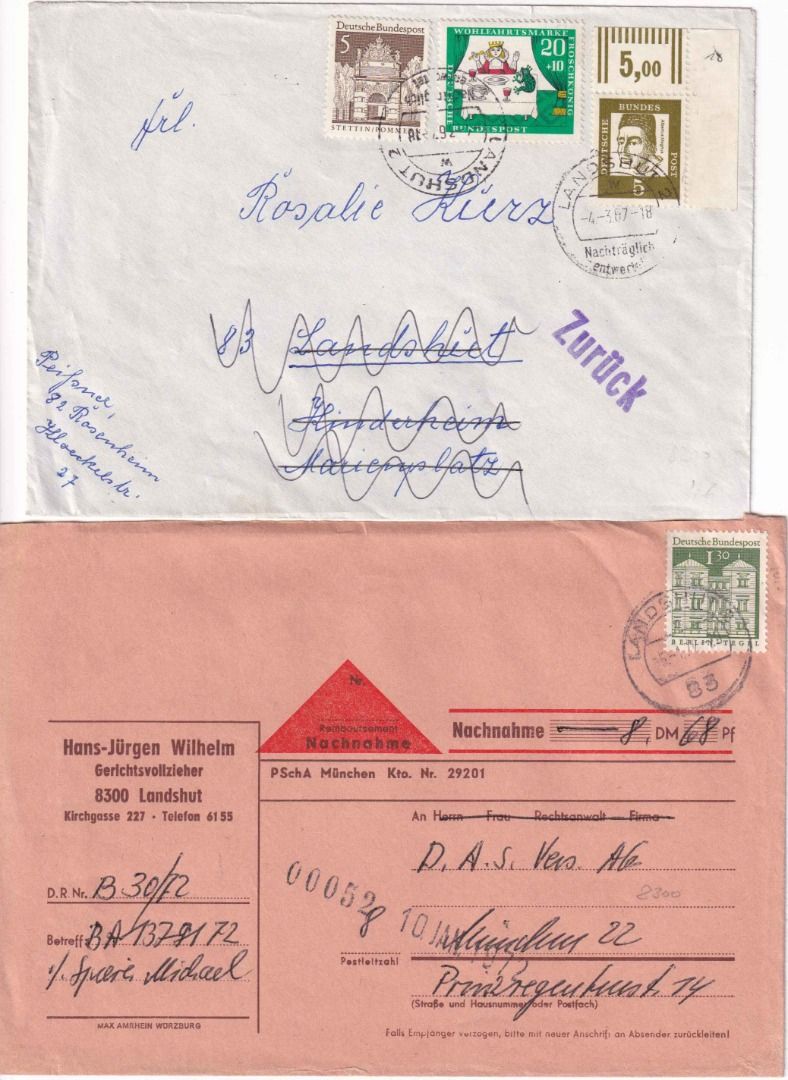 Deutsche Bundespost
5
STETTIN/POMMERN
WOHLFAHRTSMARKE
FROSCHKÖNIG
20
+10
DEUTSCHE
BUNDESPOST
5,00
DEUTSCHE
BUNDES
POST
5
LANDSHUT 2
W
LANDSHUT
W
-4.-3.67-18
Nachträglich
entwertet
Frl.
Rosalie Kürz
83 Landshut
Kinderheim
Marienplatz
Zurück
82 Rosenheim
27
Deutsche Bundespost
1 30
BERLIN-TEGEL
LANDSHUT
83
Nr.
Remboursement
Nachnahme
Nachnahme 8, DM 68 Pf
Hans-Jürgen Wilhelm
Gerichtsvollzieher
8300 Landshut
Kirchgasse 227 · Telefon 61 55
PSchA München Kto. Nr. 29201
An Herrn – Frau – Rechtsanwalt – Firma
D. A. S. Vers. AG
8300
D.R. Nr. B 30/72
00052
8
10 JAN
München 22
Betreff:
Michael
Postleitzahl
Prinzregentenstr. 14
(Straße und Hausnummer oder Postfach)
MAX AMRHEIN WÜRZBURG
Falls Empfänger verzogen, bitte mit neuer Anschrift an Absender zurückleiten!